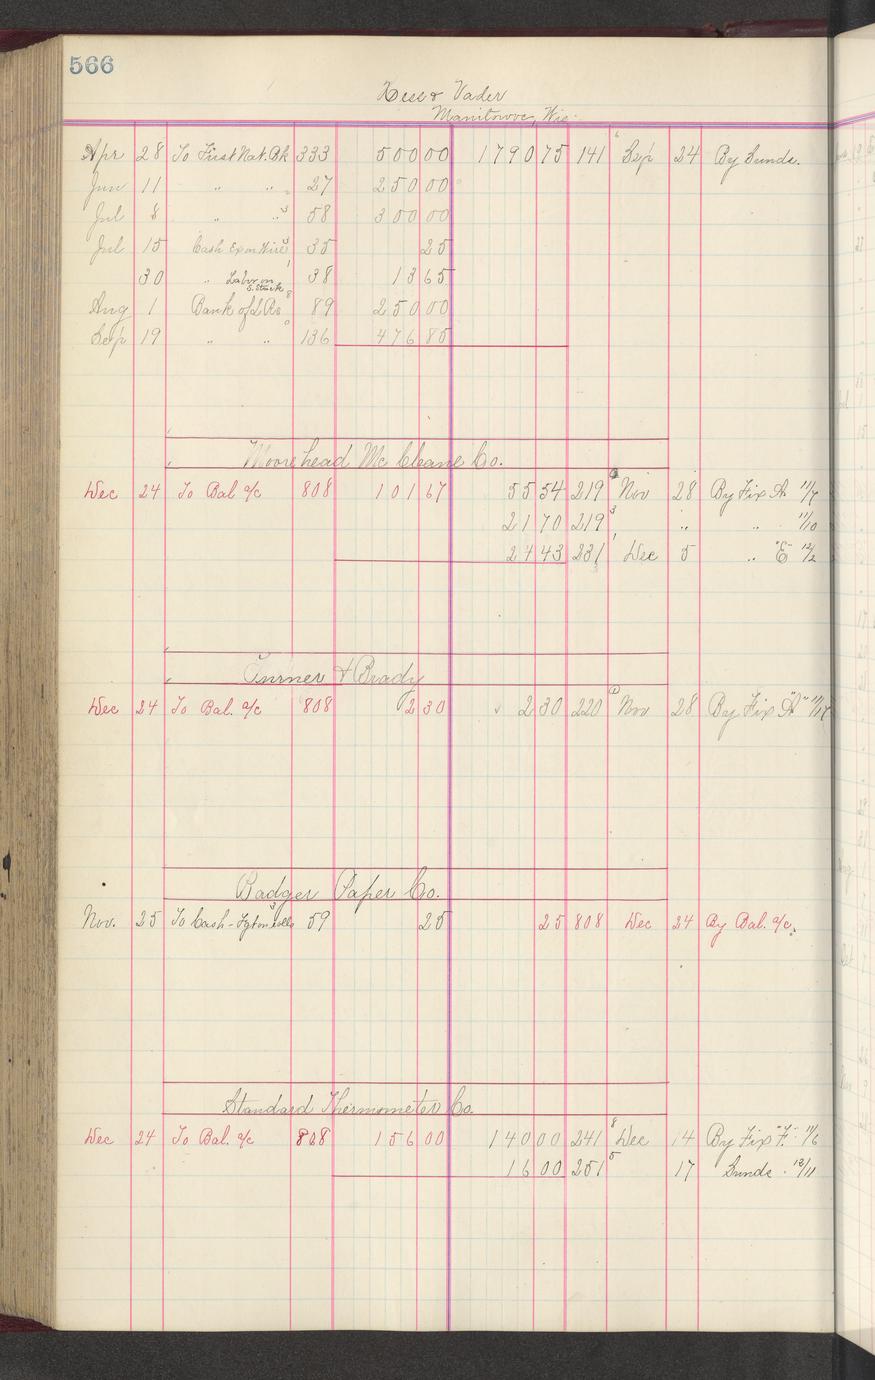 566
& Vader
Manitowoc, Wis.
Apr 28 To First Nat. Bk 333 500 00 1790 75 141 Sep 24 By Sunds.
Jun 11 " " 27 250 00
Jul 8 " " 58 300 00
Jul 15 Cash Ex on Wire 35 25
30 " Labor on S. Stack 38 13 65
Aug 1 Bank of 89 250 00
Sep 19 " " 136 476 85
Moorehead Mc Cleane Co.
Dec 24 To Bal a/c 808 101 67 55 54 219 Nov 28 By Fix A 11/7
21 70 219 " " 11/10
24 43 231 Dec 5 " "E" 12/2
Turner & Brady
Dec 24 To Bal. a/c 808 2 30 2 30 220 Nov 28 By Fix "A" 11/17
Badger Paper Co.
Nov. 25 To Cash - 59 25 25 808 Dec 24 By Bal. a/c.
Standard Thermometer Co.
Dec 24 To Bal. a/c 808 156 00 140 00 241 Dec 14 By Fix "F" 11/6
16 00 251 17 Sunds. 12/11